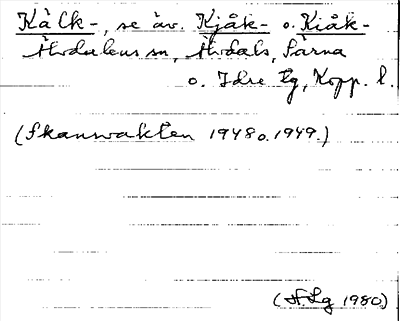 Kålk-, se äv. Kjåk- o. Kiåk-
Älvdalens sn, Älvdals, Särna
o. Idre tg, Kopp. l.
(Skansvakten 1948 o. 1949.)
(S.Lg 1980)